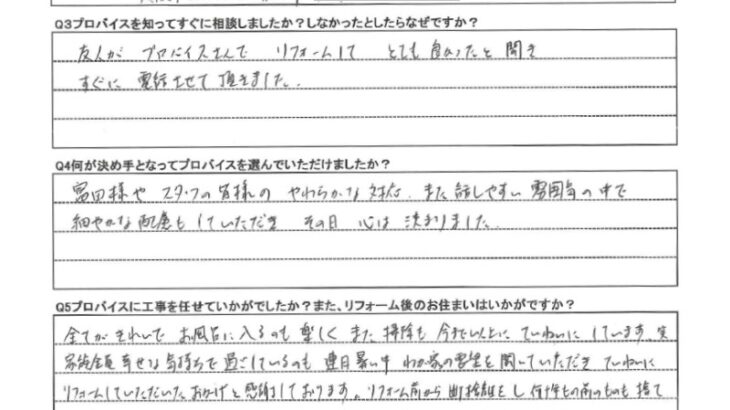 Q3プロバイスを知ってすぐに相談しましたか?しなかったとしたらなぜですか?
友人が プロバイスさんで リフォームして とても良かったと聞き
すぐに 電話させて頂きました.
Q4何が決め手となってプロバイスを選んでいただけましたか?
冨田様や スタッフの皆様の やわらかな対応. また話しやすい雰囲気の中で
細やかな配慮もしていただき その日 心は 決まりました.
Q5プロバイスに工事を任せていかがでしたか?また、リフォーム後のお住まいはいかがですか?
全てがきれいで お風呂に入るのも 楽しく また 掃除も 今まで以上に ていねいに しています。
家族全員 幸せな気持ちで 過ごしているのも 連日暑い中 わが家の要望を聞いていただき ていねいに
リフォームしていただいた おかげと感謝しております。リフォーム前から断捨離をし 何十年もの前のものも 捨て